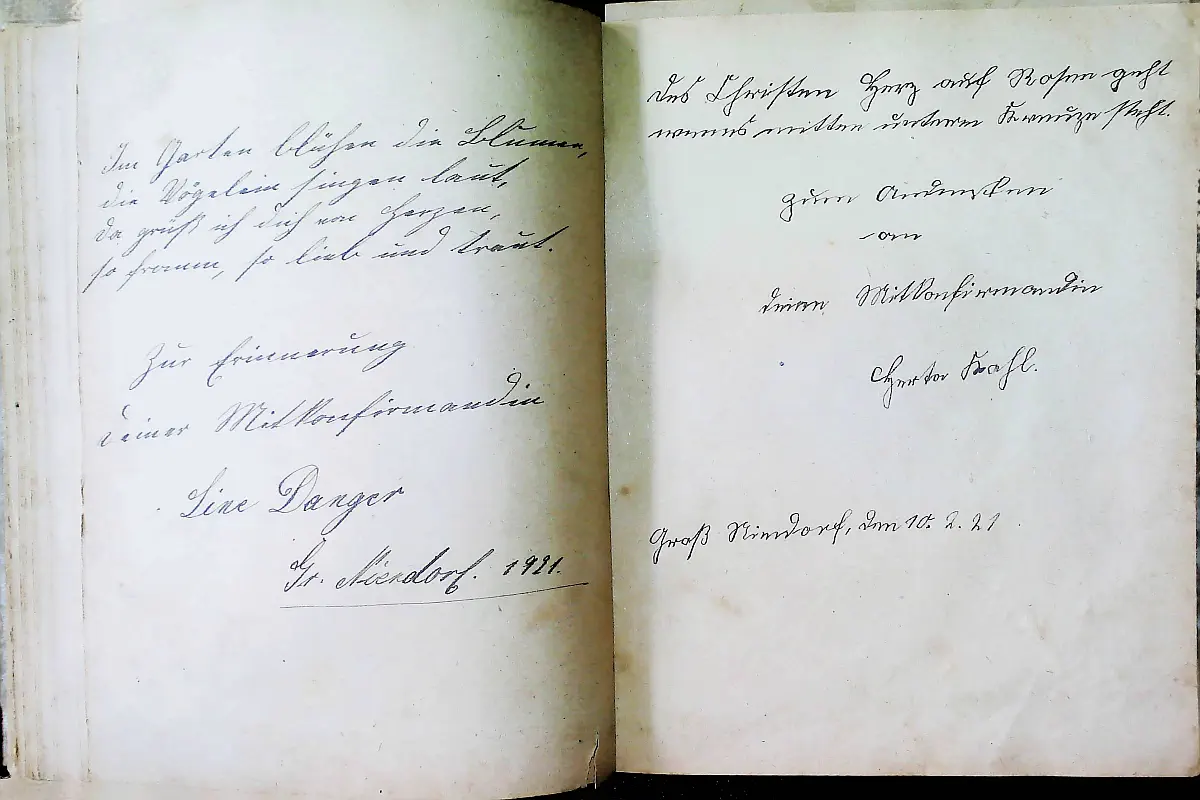 Im Garten blühen die Blumen,
die Vögelein singen laut,
da grüß ich dich von Herzen,
so fromm, so lieb und traut.
Zur Erinnerung
deiner Mitkonfirmandin
Line Danger
Gr. Niendorf. 1921.
Des Christen Herz auf Rosen geht
wenns mitten unterm Kreuze steht.
Zum Andenken
an
deine Mitkonfirmandin
Herta Kahl.
Groß Niendorf, den 10. 2. 21